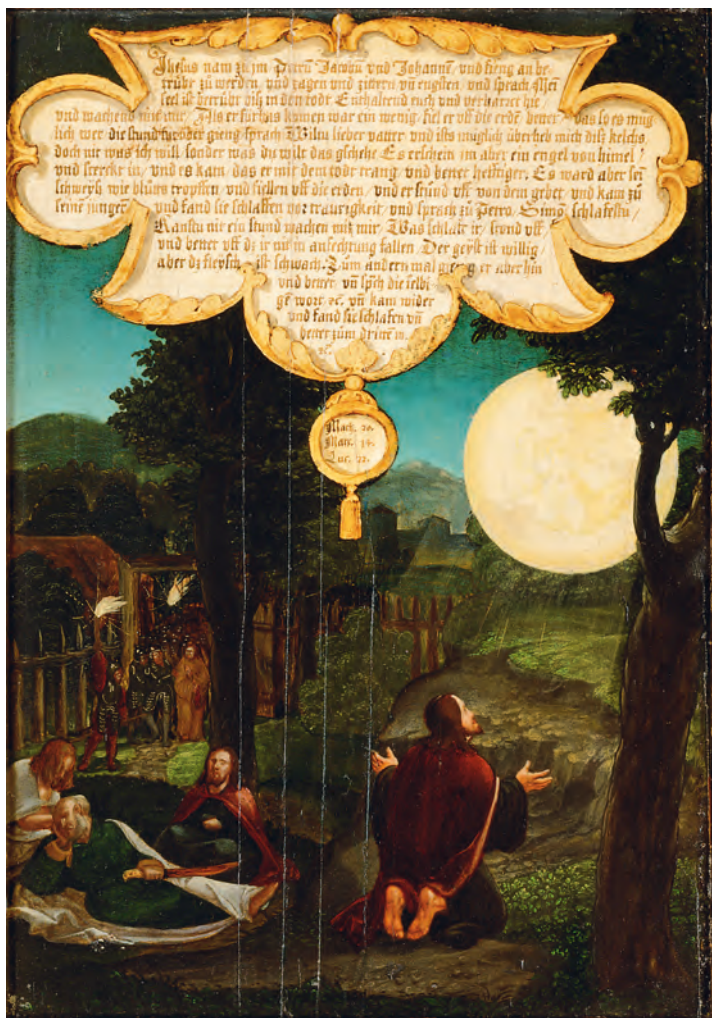 Jhesus nam zu im Petrū Jacobū vnd Johannē, vnd fieng an be⸗
trübt zů werden, vnd zagen vnd zittern vñ engsten, vnd sprach Mein
seel ist betrübt biß in den todt Enthaltend euch vnd verharret hie
vnd wachend mit mir. Als er fürbas komen war ein wenig, fiel er vff die erdē, bettet, das so es müg
lich wer die stund fürüber gieng, sprach Min lieber vatter vnd ists müglich überheb mich diß kelchs,
doch nit was ich will sonder was du wilt das gschehe Es erschein im aber ein engel von himel,
vnd sterckt in, vnd es kam, das er mit dem todt rang, vnd bettet hefftiger, Es ward aber sei
schweyß wie blůts tropffen, vnd fiellen vff die erden, vnd er stůnd vff von dem gebet, vnd kam zů
seinē jungeren vnd fand sie schlaffen vor traurigkeit, vnd sprach zů Petro, Simō schlafestu,
Kanstu nit ein stund wachen mit mir, Was schlaft ir, stond vff,
vnd bettet vff dz ir nit in anfechtung fallen Der geyst ist willig,
aber dz fleysch ist schwach. Zum andern mal gieng er aber hin
vnd bettet vñ sp̄ch die selbi
gē wort ꝛc. vñ kam wider
vnd fand sie schlafen vñ
bettet zům dritten m.
ꝛc.
Math. 26.
Mar. 14.
Luc. 22.